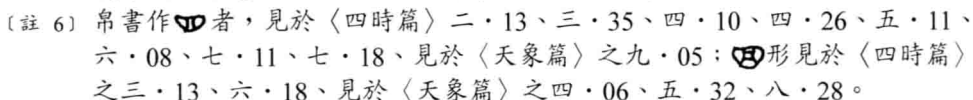 〔註 6〕帛書作者，見於〈四時篇〉二·13、三·35、四·10、四·26、五·11、
六·08、七·11、七·18、見於〈天象篇〉之九·05；形見於〈四時篇〉
之三·13、六·18、見於〈天象篇〉之四·06、五·32、八·28。